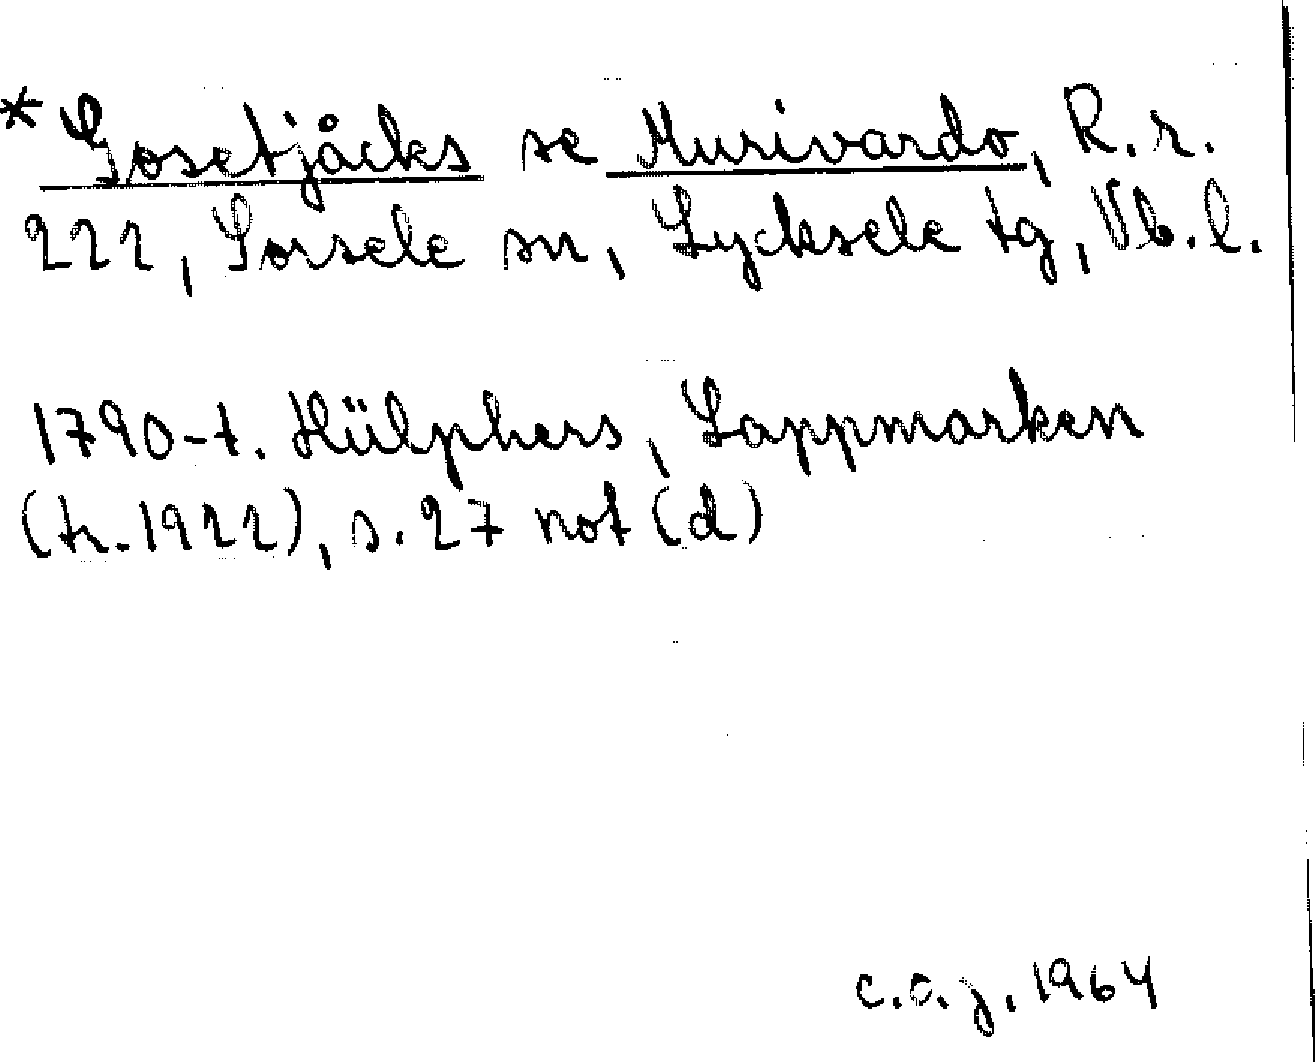 *Gosetjåcks se Murivardo, R.r.
222, Sorsele sn, Lycksele tg, Vb.l.
1790-t. Hülphers, Lappmarken
(tr. 1922), s. 27 not (d)
C.O.J. 1964